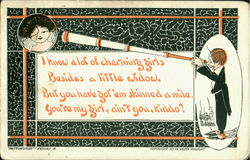 I know a lot of charming girls
Besides a little widow.
But you have got 'em skinned a mile.
You're my girl, ain't you, Kiddo?